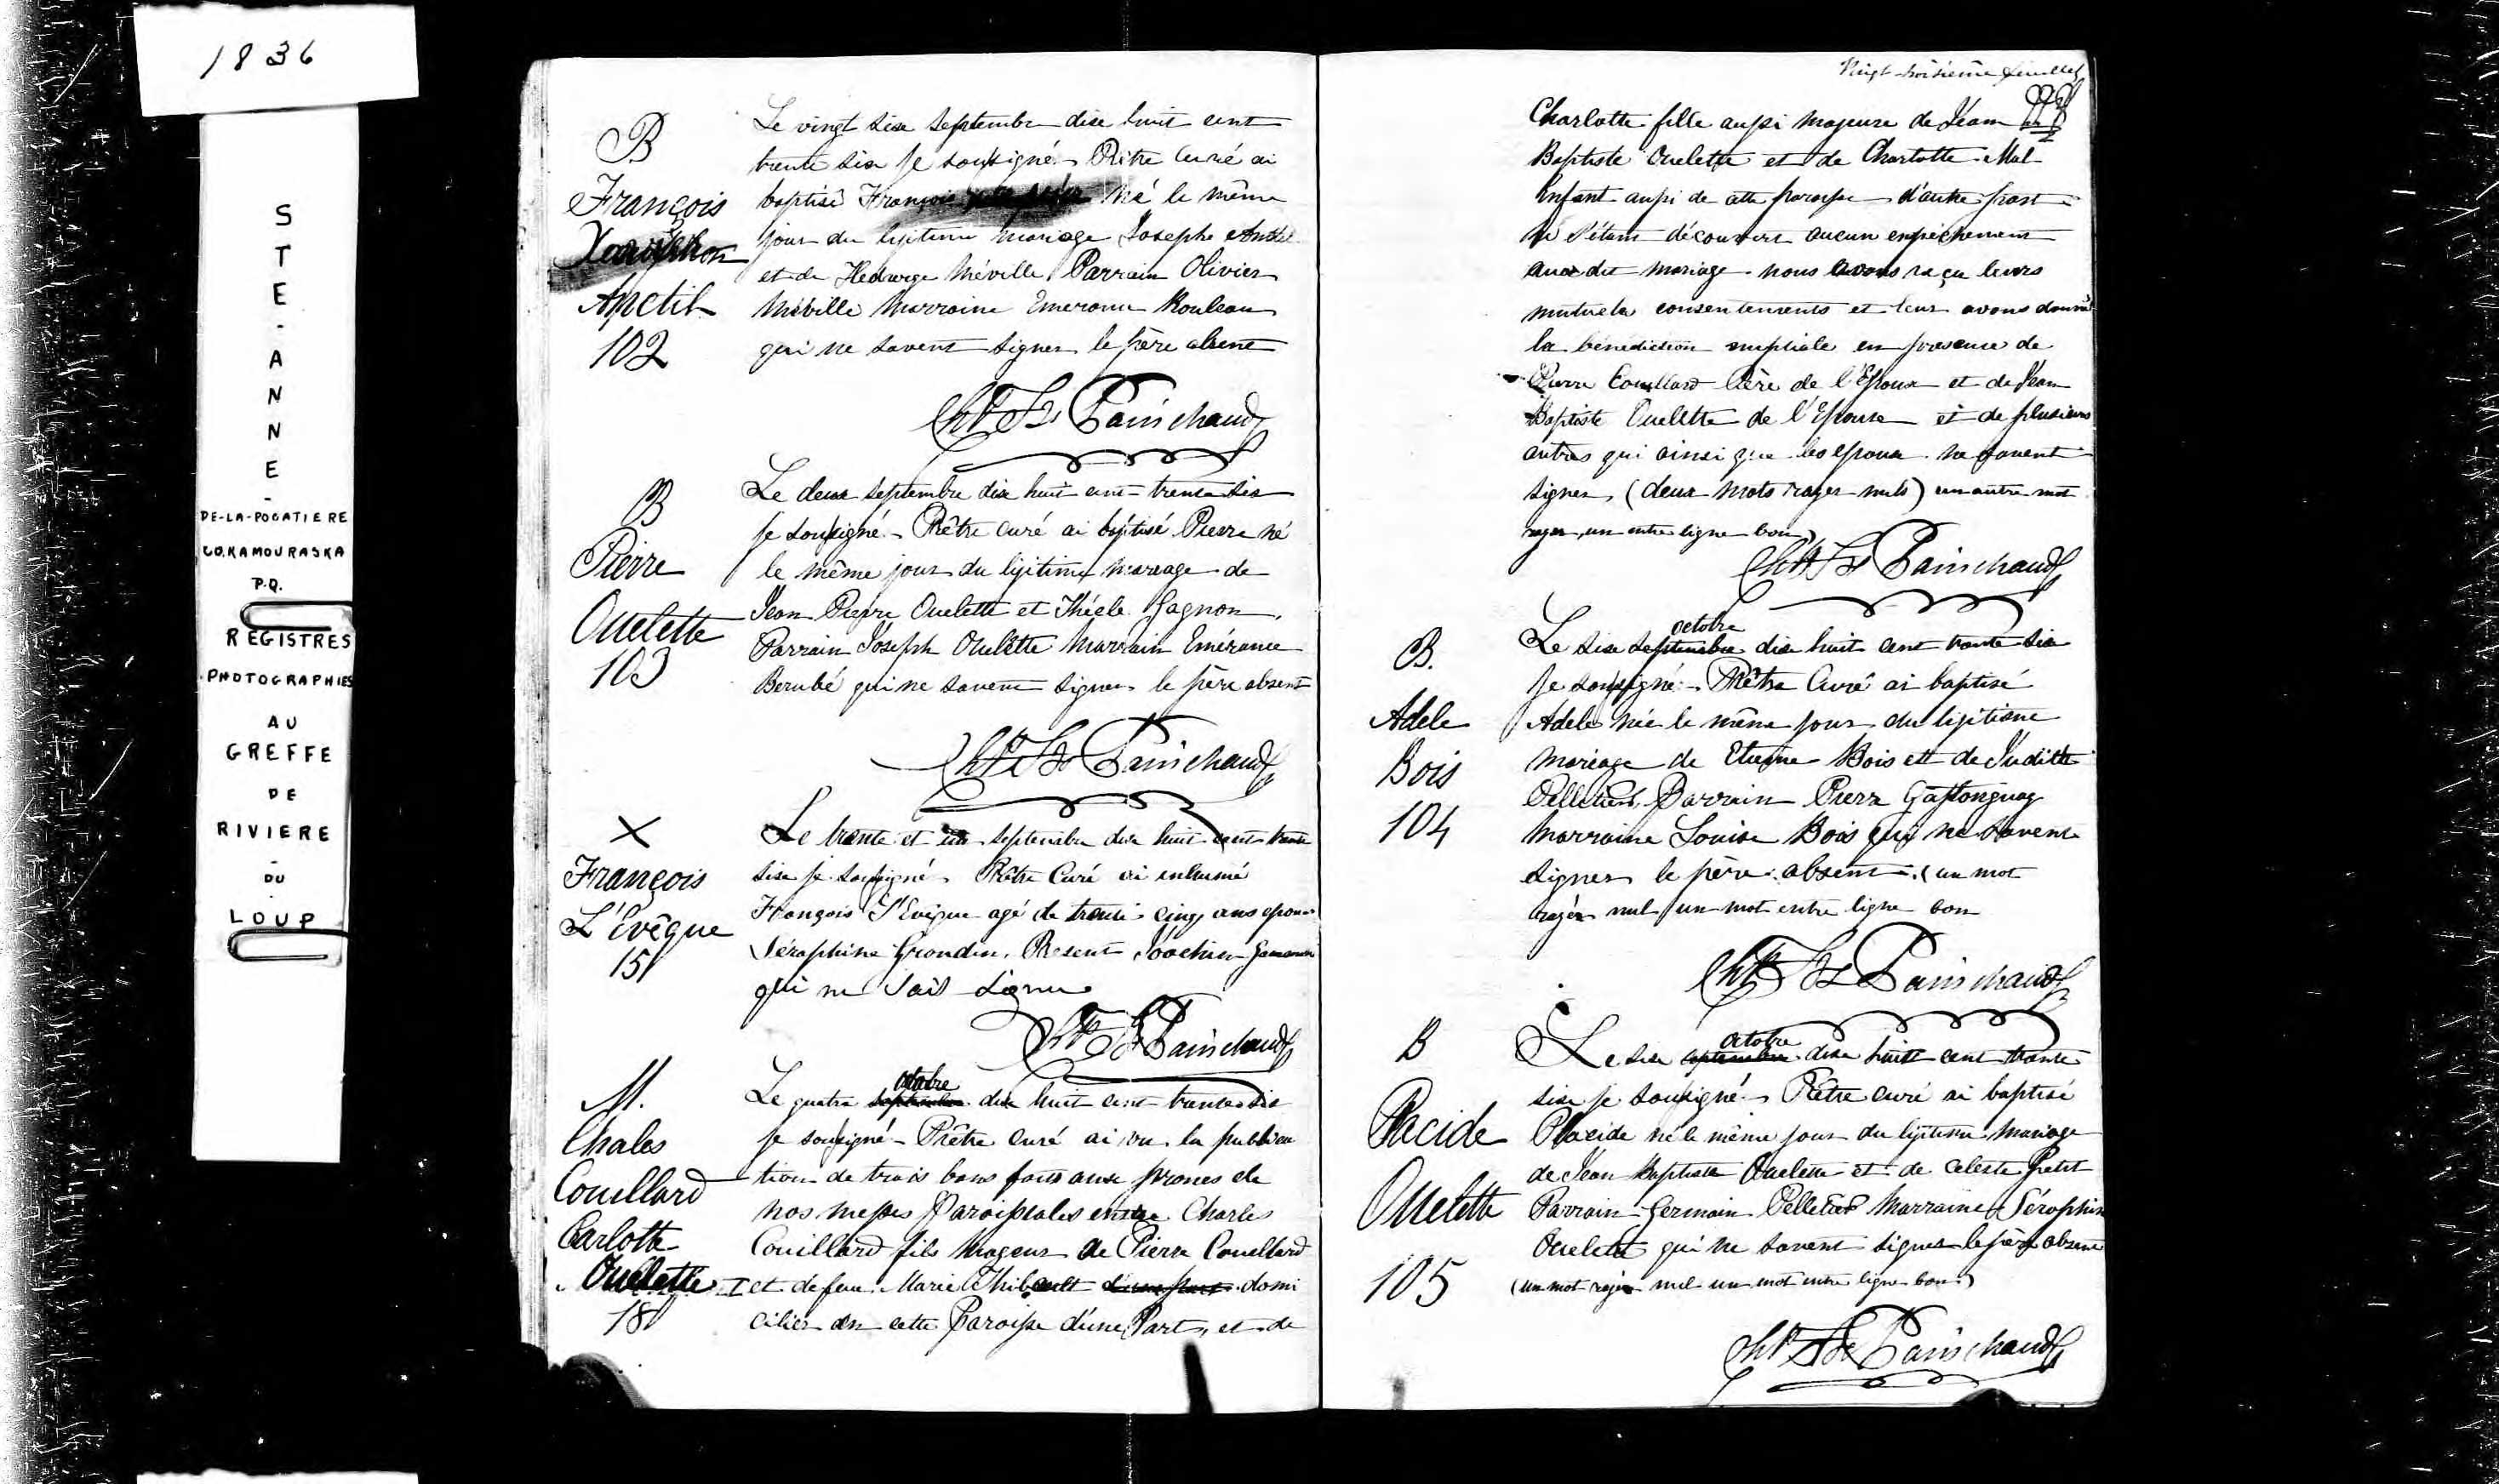 1836
STE-ANNE-
DE-LA-POCATIERE
CO.KAMOURASKA
P.Q.
REGISTRES
PHOTOGRAPHIES
AU
GREFFE
DE
RIVIERE
-
DU
-
LOUP
B
François
Anctil
102
Le vingt sise septembre dise huit cent
trente sise Je soussigné Prêtre curé ai
baptisé François né le même
jour du légitime mariage Josephe Anctil
et de Hedwige Méville Parrain Olivier
Méville Marraine Emerance Rouleau
qui ne savent signer le père absent
Cht Fs Painchaud
B
Pierre
Ouelette
103
Le deux septembre dise huit cent trente sise
Je soussigné Prêtre curé ai baptisé Pierre né
le même jour du légitime mariage de
Jean Pierre Ouelette et Thècle Gagnon.
Parrain Joseph Ouelette Marrain Emérance
Berubé qui ne savent signer le père absent
Cht Fs Painchaud
X
François
L'Evêque
15
Le trente et un septembre dise huit cent trente
sise je soussigné Prêtre Curé ai inhumé
François L'Evêque agé de trente cinq ans epoux
Séraphine Grondin. Present Joachim
qui ne sait signer
Cht Fs Painchaud
M.
Chales
Couillard
Carlotte
Ouelette
18
Le quatre septembre octobre dise huit cent trente sise
je soussigné Prêtre curé ai vu la publica
tion de trois bans faits aux prones de
nos messes Paroissiales entre Charles
Couillard fils Mageur de Pierre Couillard
et de feue Marie Thibeault d'une part domi
ciliés en cette Paroisse d'une Part, et de
Vingt-troisième feuillet
Charlotte fille aussi Majeure de Jean
Baptiste Ouelette et de Charlotte Mal
Enfant aussi de cette paroisse d'autre part
ne s'étant découvert aucun empèchement
aux dit mariage nous avons reçu leurs
mutuels consentements et leur avons donné
la bénédiction nuptiale en presence de
Pierre Couillard Père de l'Epoux et de Jean
Baptiste Ouelette de l'Epouse et de plusieurs
autres qui ainsi que les epoux ne savent
signer, (deux mots rayer nuls) un autre mot
rayer, un entre ligne bon)
Cht Fs Painchaud
B.
Adele
Bois
104
Le sise septembre octobre dise huit cent trente sise
Je soussigné Prêtre Curé ai baptisé
Adele née le même jour du légitime
mariage de Etienne Bois et de Judithe
Pelletier, Parrain Pierre Gastonguay
Marraine Louise Bois qui ne savent
signer le père absent. (un mot
rayér nul un mot entre ligne bon
Cht Fs Painchaud
B
Placide
Ouelette
105
Le sise septembre octobre dise huit cent trente
sise je soussigné Prêtre curé ai baptisé
Placide né le même jour du légitime mariage
de Jean Baptiste Ouelette et de Celeste Petit
Parrain Germain Pelletier Marraine Séraphin
Ouelette qui ne savent signer le père absent
(un mot rayér nul un mot entre ligne bon)
Cht Fs Painchaud